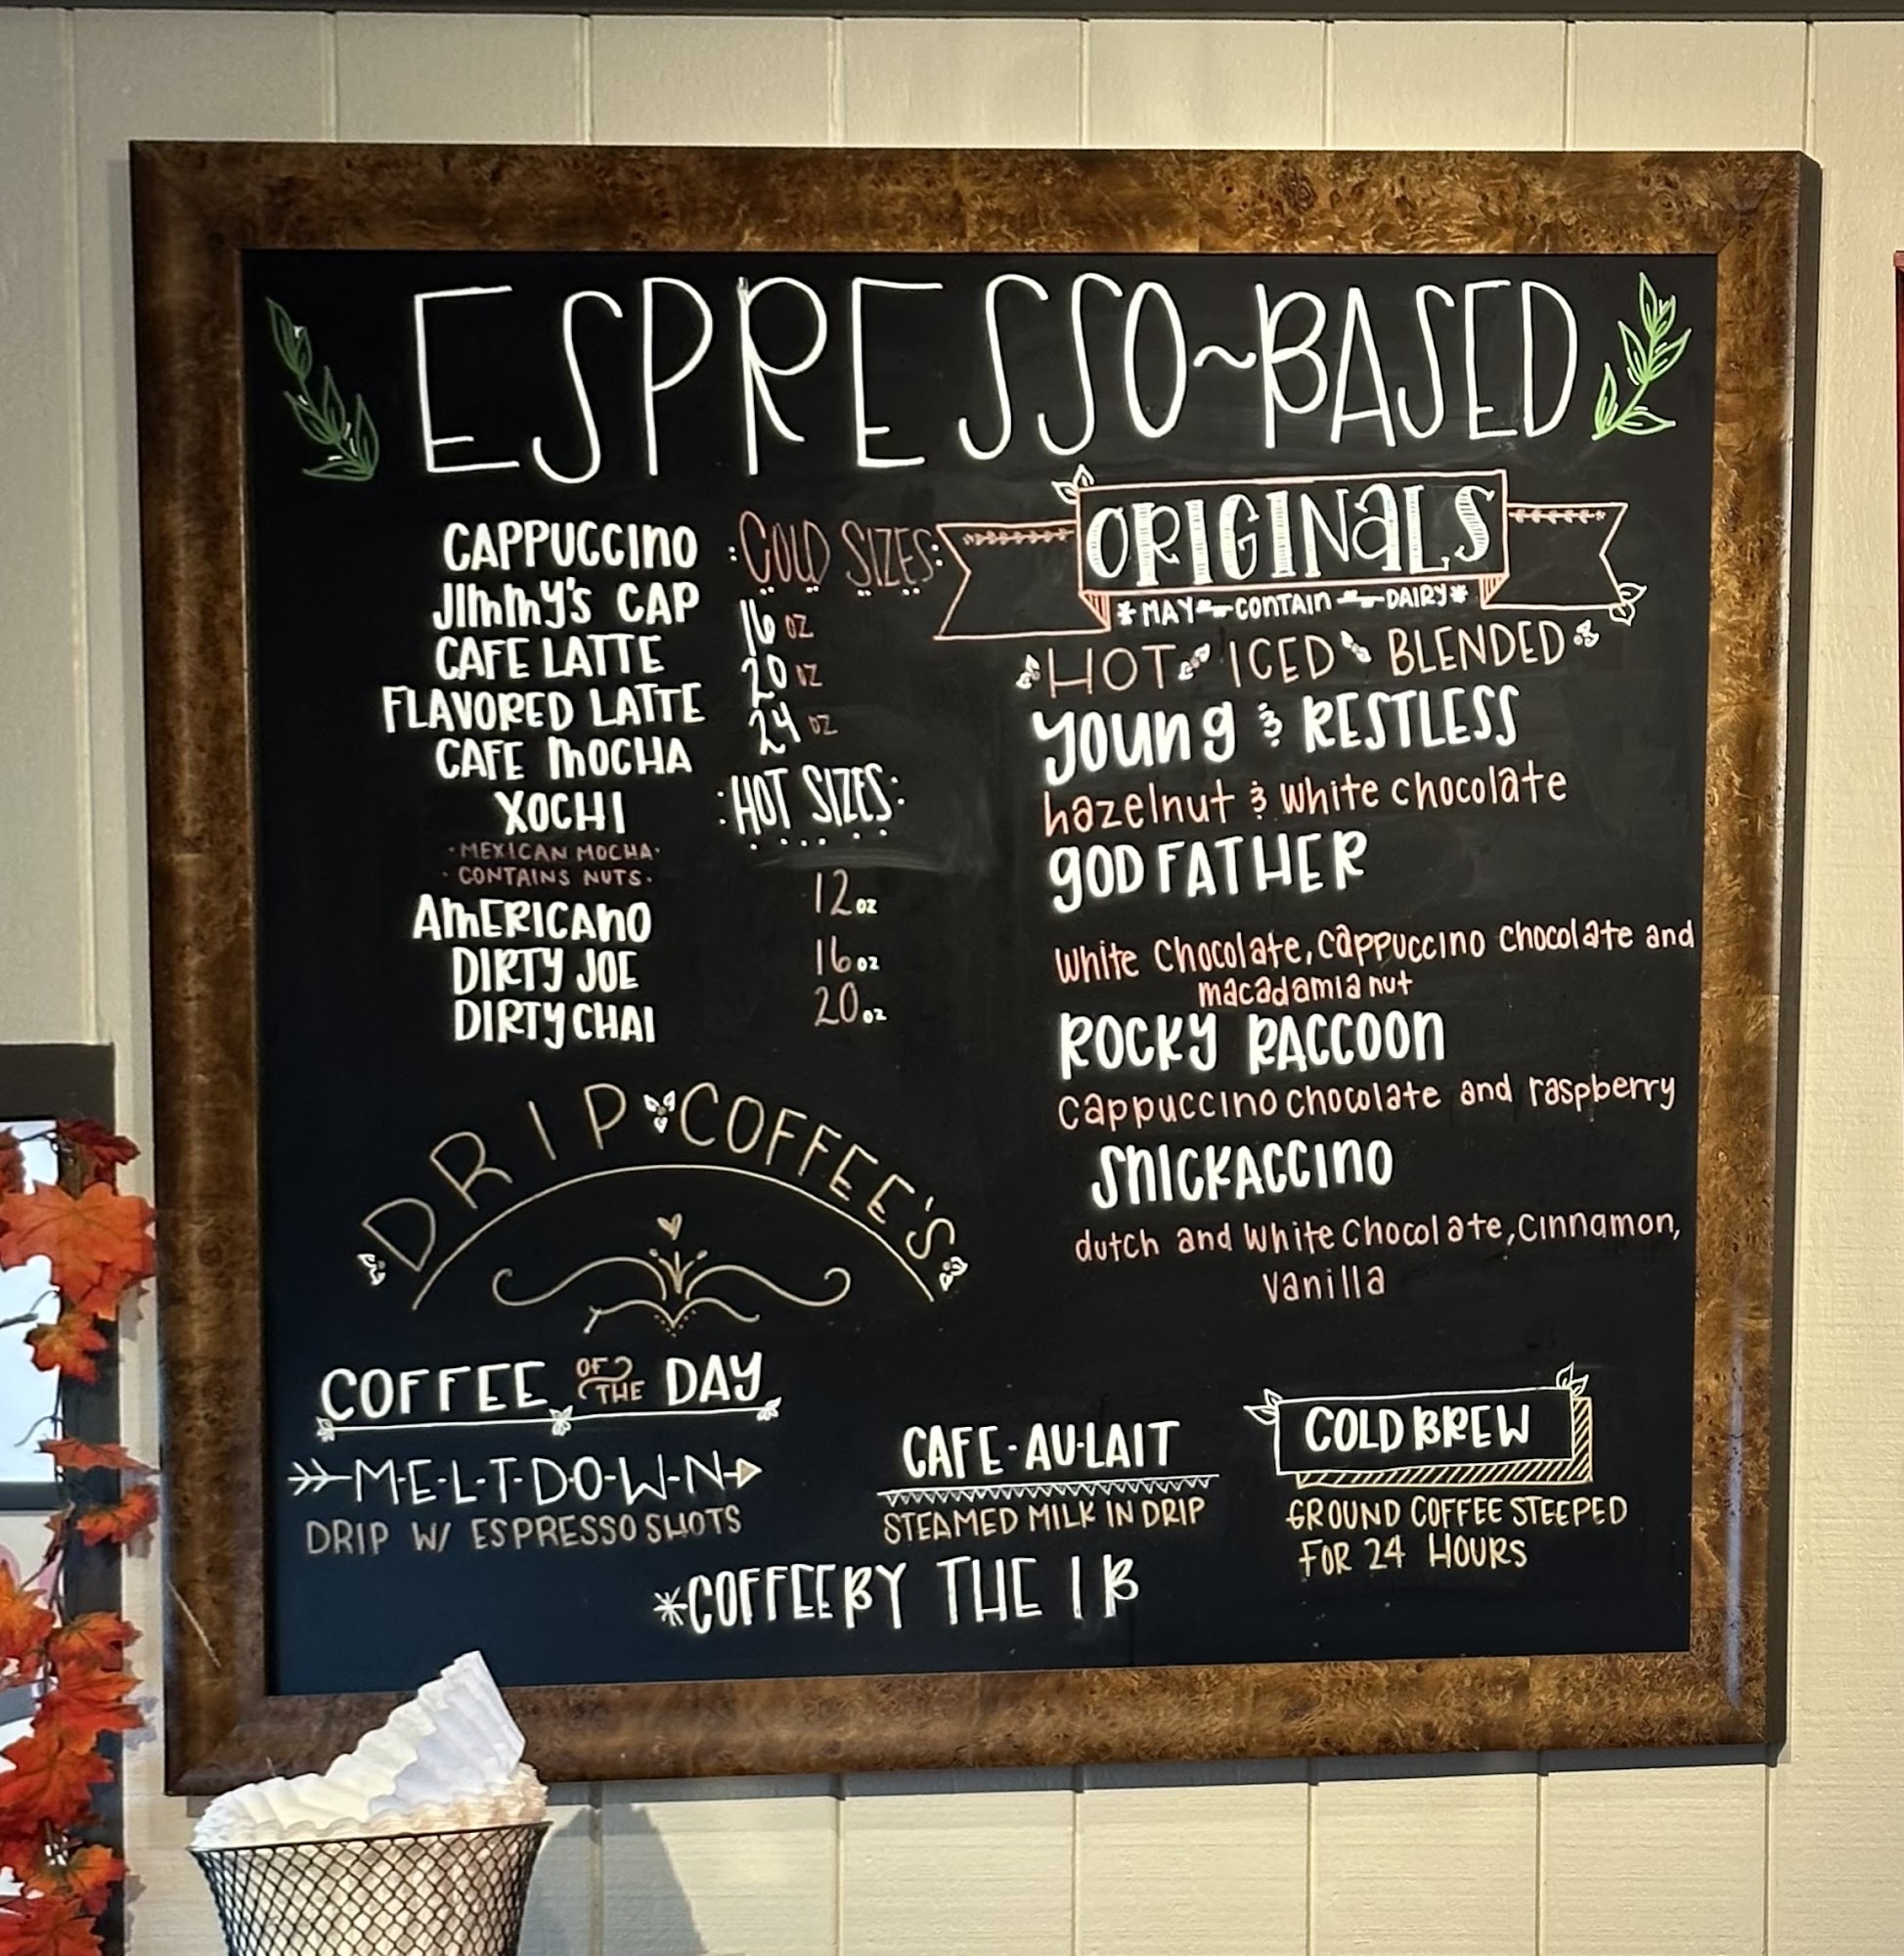 ESPRESSO~BASED
CAPPUCCINO
JIMMY'S CAP
CAFE LATTE
FLAVORED LATTE
CAFE MOCHA
XOCHI
·MEXICAN MOCHA·
·CONTAINS NUTS·
AMERICANO
DIRTY JOE
DIRTY CHAI
:COLD SIZES:
16 OZ
20 OZ
24 OZ
:HOT SIZES:
12 OZ
16 OZ
20 OZ
ORIGINALS
*MAY CONTAIN DAIRY*
HOT ICED BLENDED
YOUNG & RESTLESS
hazelnut & white chocolate
GODFATHER
White Chocolate, cappuccino chocolate and
macadamia nut
ROCKY RACCOON
Cappuccino chocolate and raspberry
SNICKACCINO
dutch and White Chocolate, Cinnamon,
Vanilla
DRIP COFFEE'S
COFFEE OF THE DAY
M-E-L-T-D-O-W-N
DRIP W/ ESPRESSO SHOTS
CAFE·AU·LAIT
STEAMED MILK IN DRIP
COLD BREW
GROUND COFFEE STEEPED
FOR 24 HOURS
*COFFEE BY THE LB